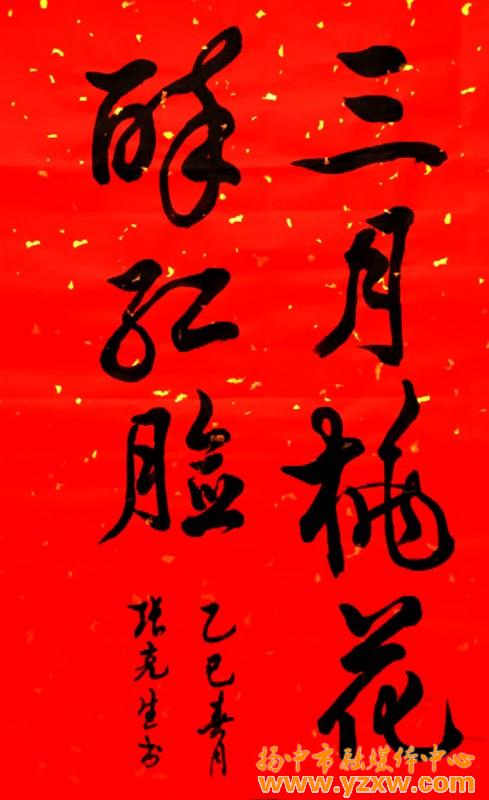 三月桃花
醉红脸
乙巳春月
张克生书
扬中市融媒体中心
www.yzxw.com